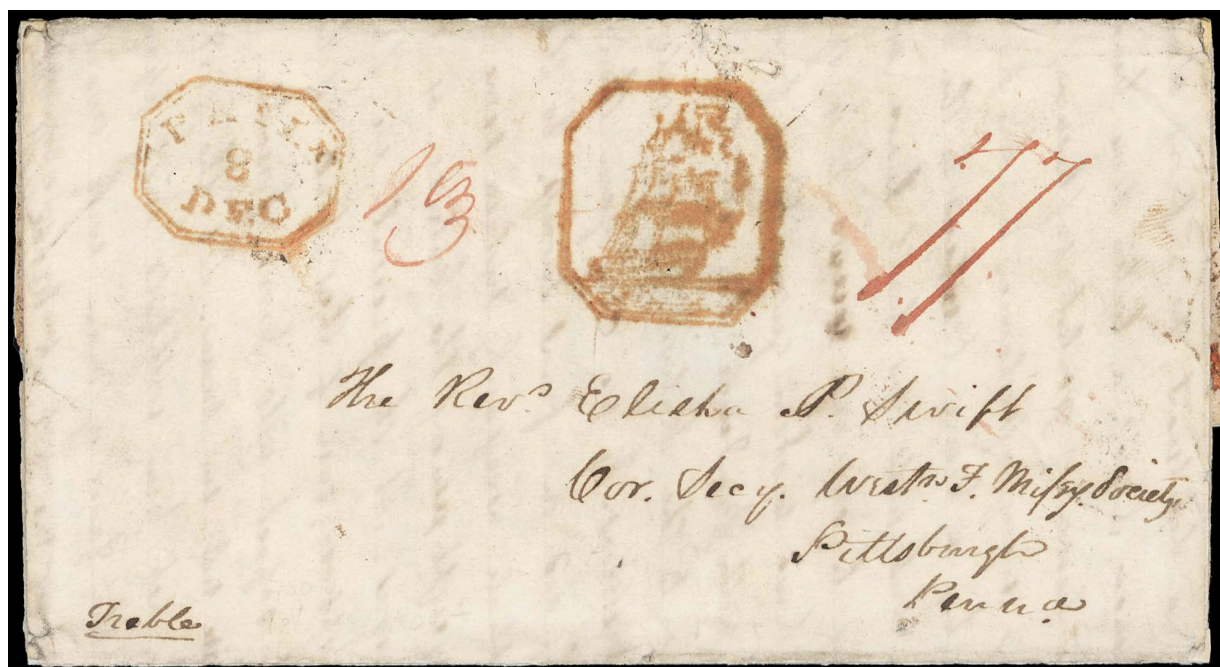 PHILA
8
DEC
77
The Revd. Elisha P. Swift
Cor. Secy. Westn. F. Missy. Society
Pittsburgh
Penna
Treble